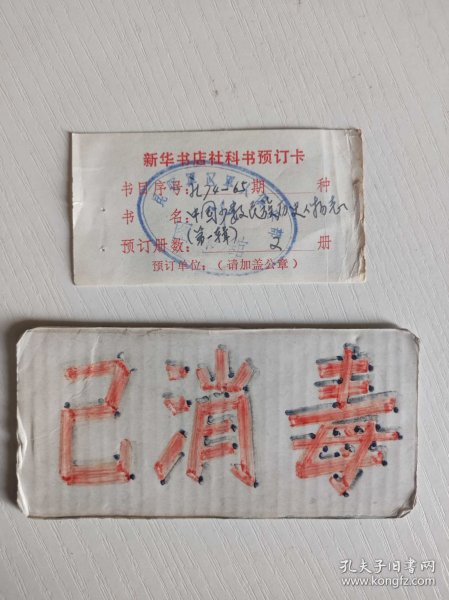 新华书店社科书预订卡
书目序号:北74-65期 种
书 名:中国少数民族历史人物志
(第一辑)
预订册数: 2 册
预订单位:(请加盖公章)
已消毒
孔夫子旧书网
www.kongfz.com